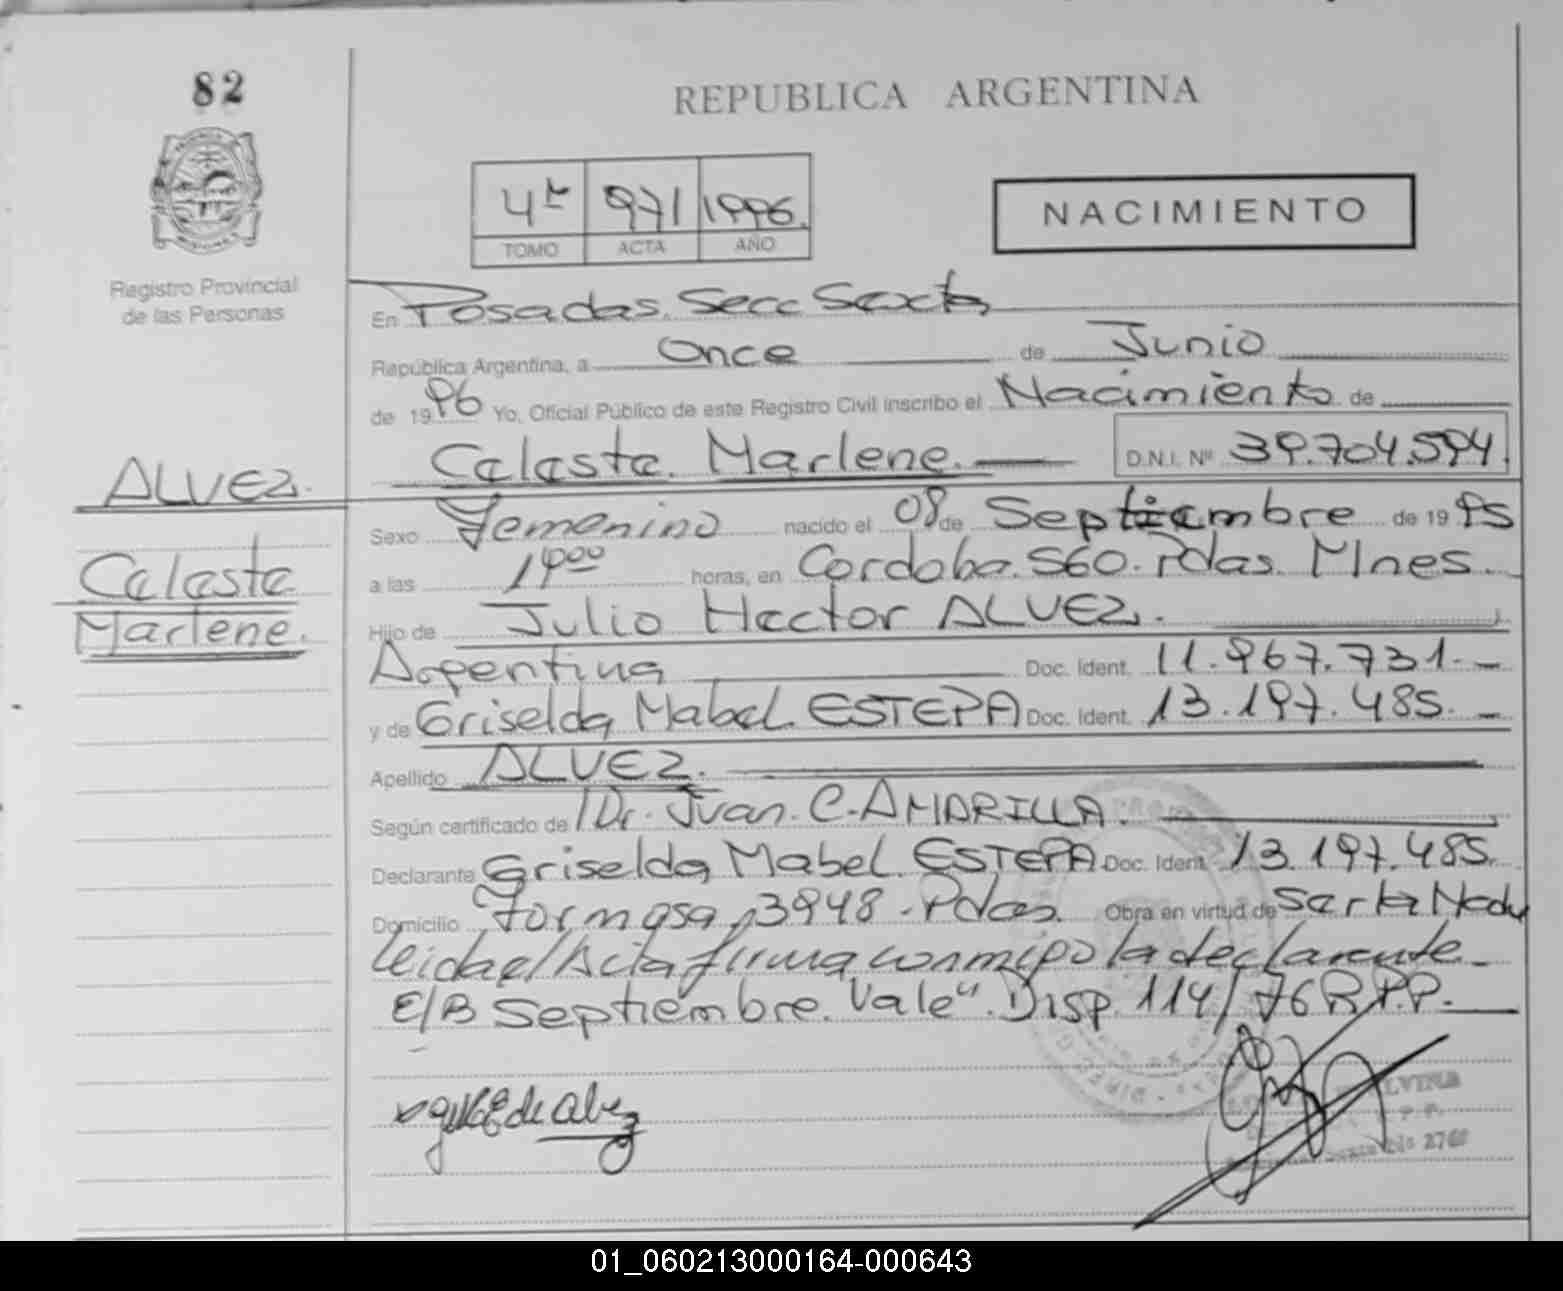 82
REPUBLICA ARGENTINA
4to 971 1996.
TOMO ACTA AÑO
NACIMIENTO
Registro Provincial
de las Personas
En Posadas. Secc Sexta
República Argentina, a Once de Junio
de 1996 Yo, Oficial Público de este Registro Civil inscribo el Nacimiento de
Celeste. Marlene. D.N.I. Nº 39.704.594.
ALVEZ.
Celeste
Marlene.
Sexo Femenino nacido el 08 de Septiembre de 1995
a las 1900 horas, en Cordoba. 560. Pdas. Mnes.
Hijo de Julio Hector ALVEZ.
Argentina Doc. Ident. 11.967.731.
y de Griselda Mabel ESTEPA Doc. Ident. 13.197.485.
Apellido ALVEZ.
Según certificado de Dr. Juan. C. AMARILLA.
Declarante Griselda Mabel ESTEPA Doc. Ident. 13.197.485.
Domicilio Formosa, 3948. Pdas. Obra en virtud de
leida el Acta firma conmigo la declarante
E/B Septiembre. Vale". Disp. 114/76 R.P.P.
de Alvez
01_060213000164-000643